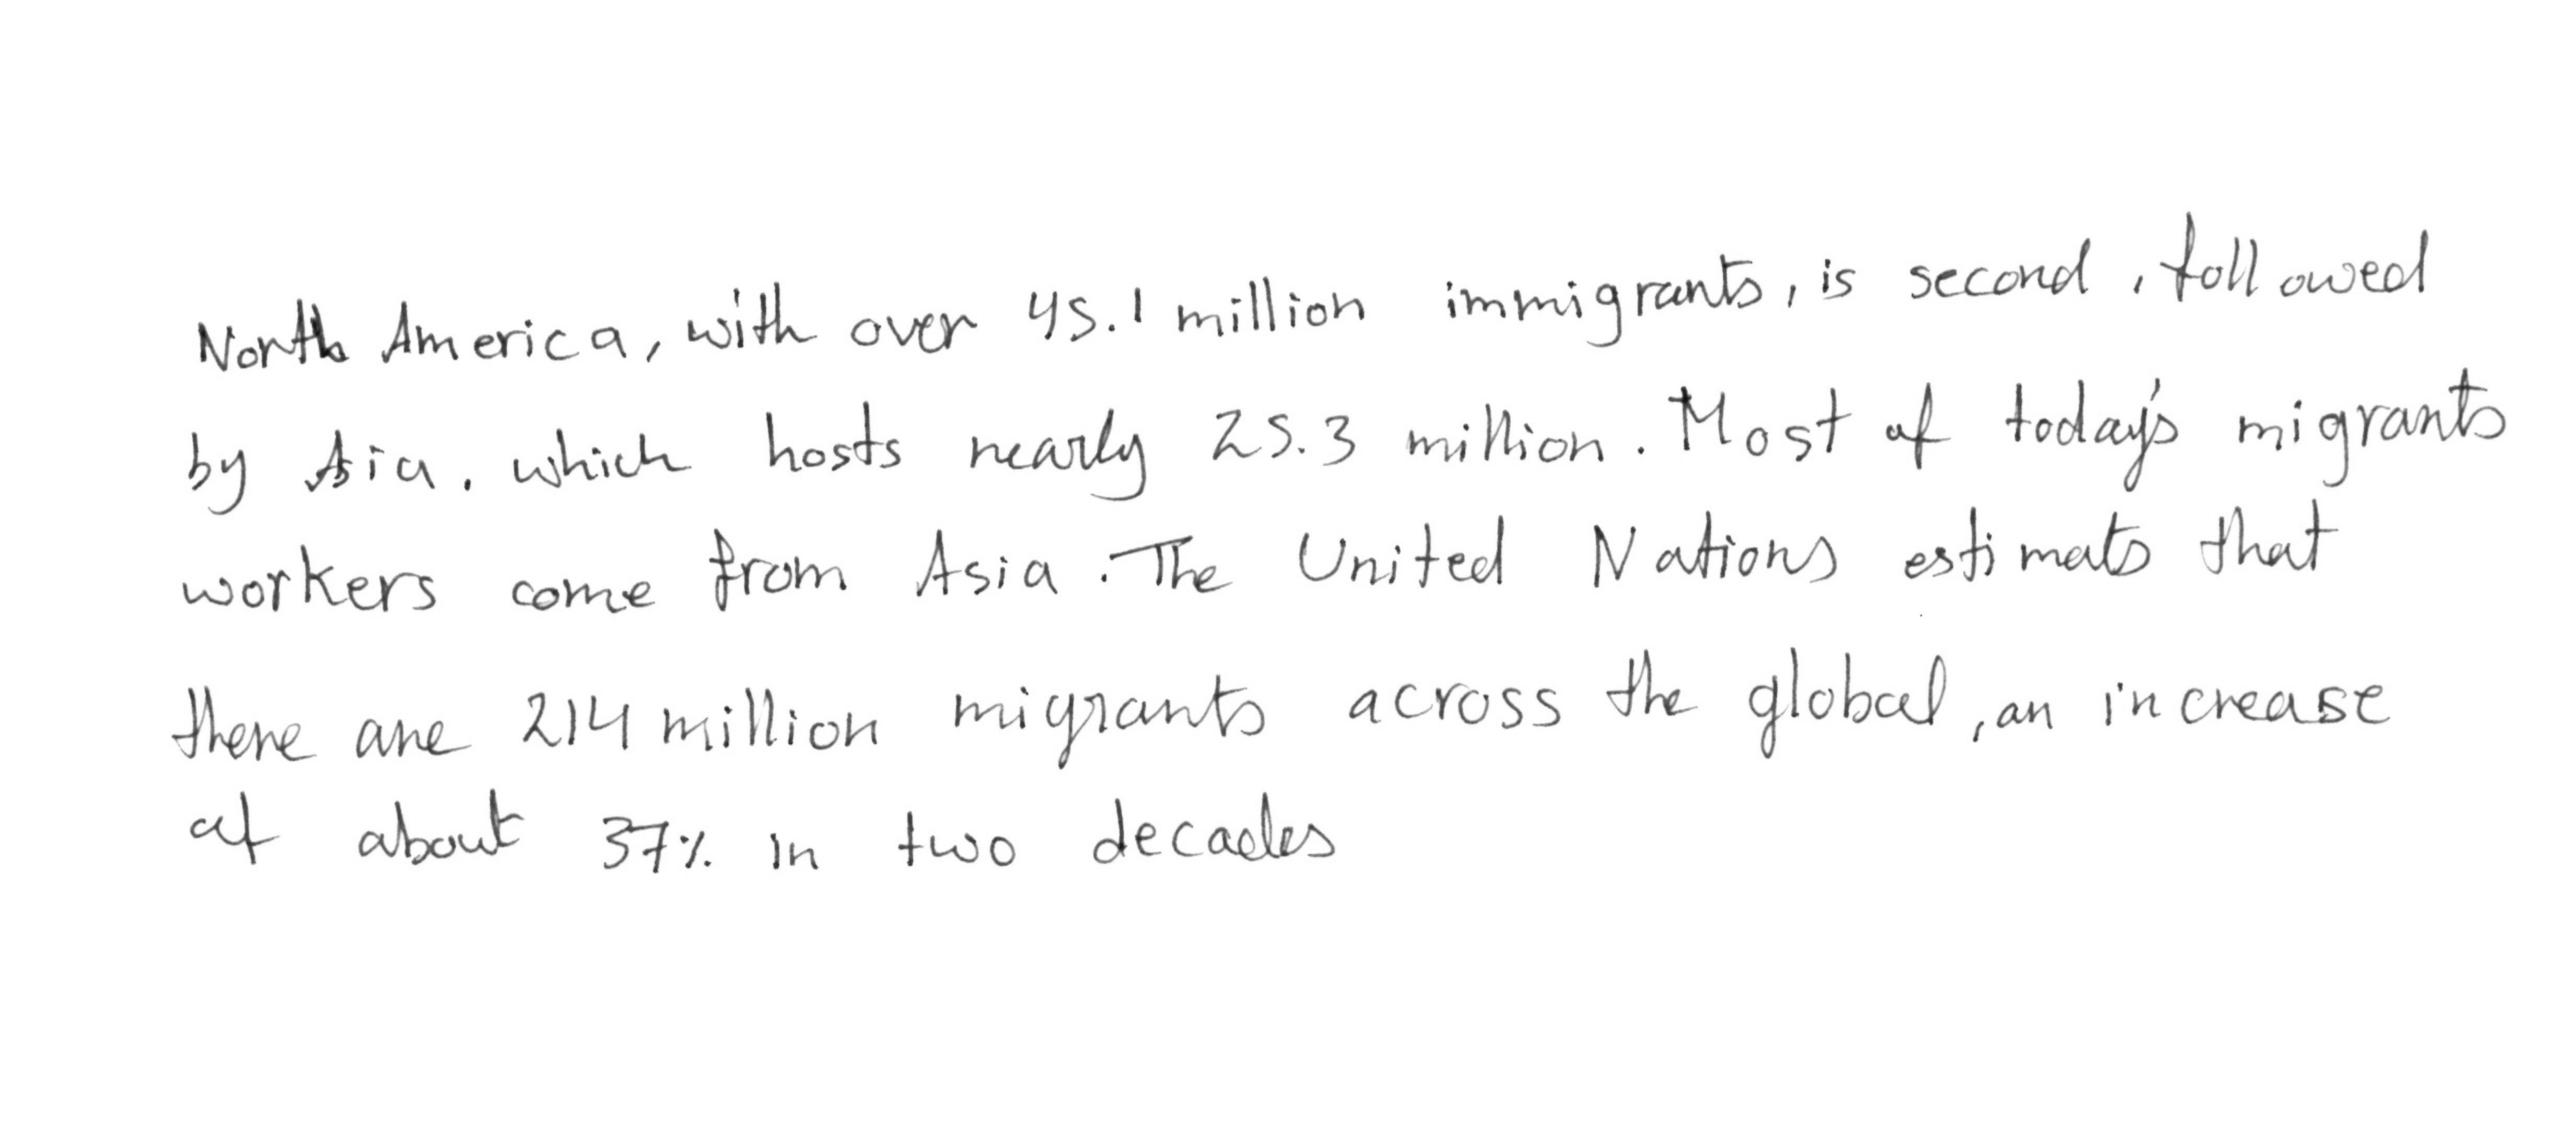 North America, with over 45.1 million immigrants, is second, followed
by Asia, which hosts nearly 25.3 million. Most of today's migrants
workers come from Asia. The United Nations estimats that
there are 214 million migrants across the global, an increase
of about 37% in two decades